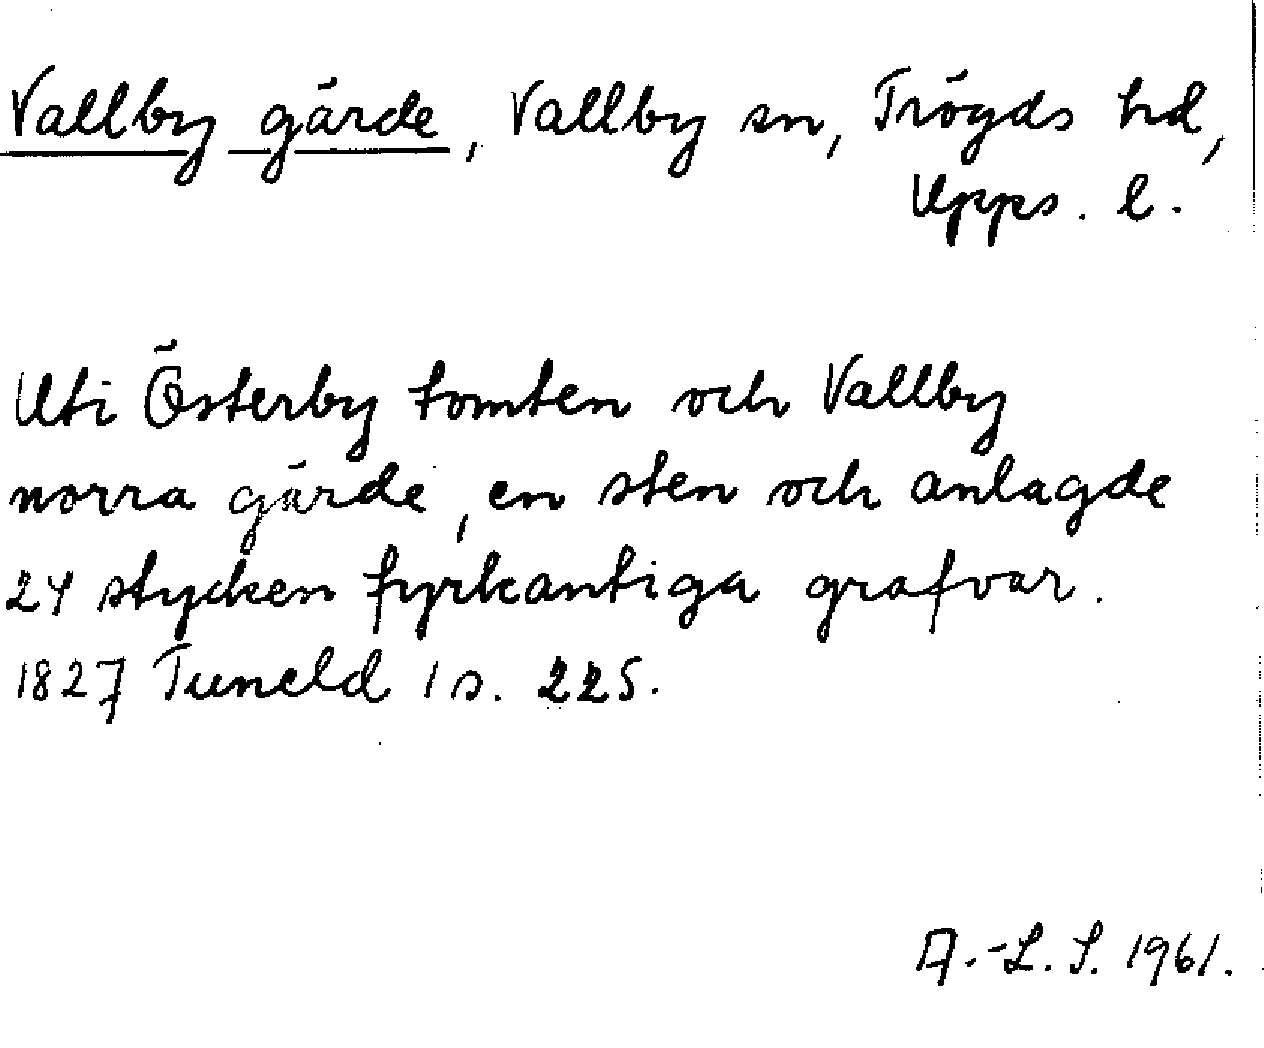 Vallby gärde, Vallby sn, Trögds hd,
Upps. l.
Uti Österby tomten och Vallby
norra gärde, en sten och anlagde
24 stycken fyrkantiga grafvar.
1827 Tuneld 1 s. 225.
A.-L. S. 1961.